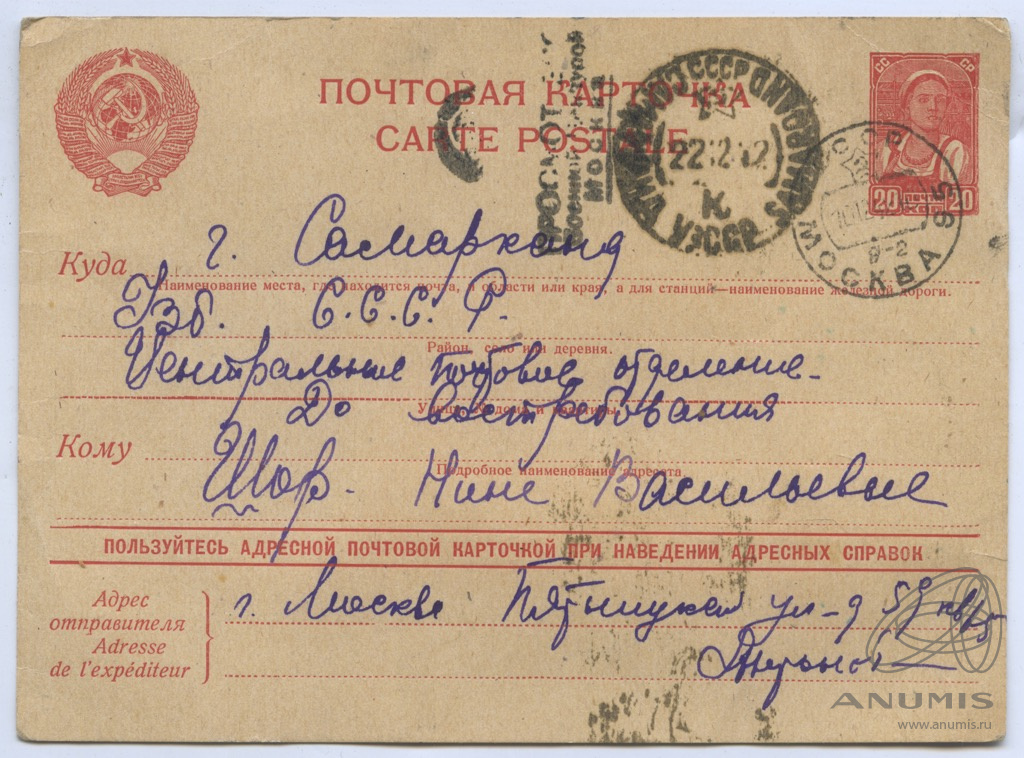 ПОЧТОВАЯ КАРТОЧКА
CARTE POSTALE
ПРОСМОТРЕНО
Военной Цензурой
МОСКВА
СССР SAMARQAND
22 12 42
К
УзССР
СС СР
20 ПОЧТА 20
СССР
МОСКВА 95
9-2
Куда г. Самарканд
Наименование места, где находится почта, и области или края, а для станций—наименование железной дороги.
Узб. С.С.С.Р.
Район, село или деревня.
Центральное почтовое отделение
До Востребования
Кому Шор. Нине Васильевне
Подробное наименование адресата
ПОЛЬЗУЙТЕСЬ АДРЕСНОЙ ПОЧТОВОЙ КАРТОЧКОЙ ПРИ НАВЕДЕНИИ АДРЕСНЫХ СПРАВОК
Адрес отправителя
Adresse de l'expéditeur
г. Москва Пятницкая ул-д 59 кв
ANUMIS
www.anumis.ru